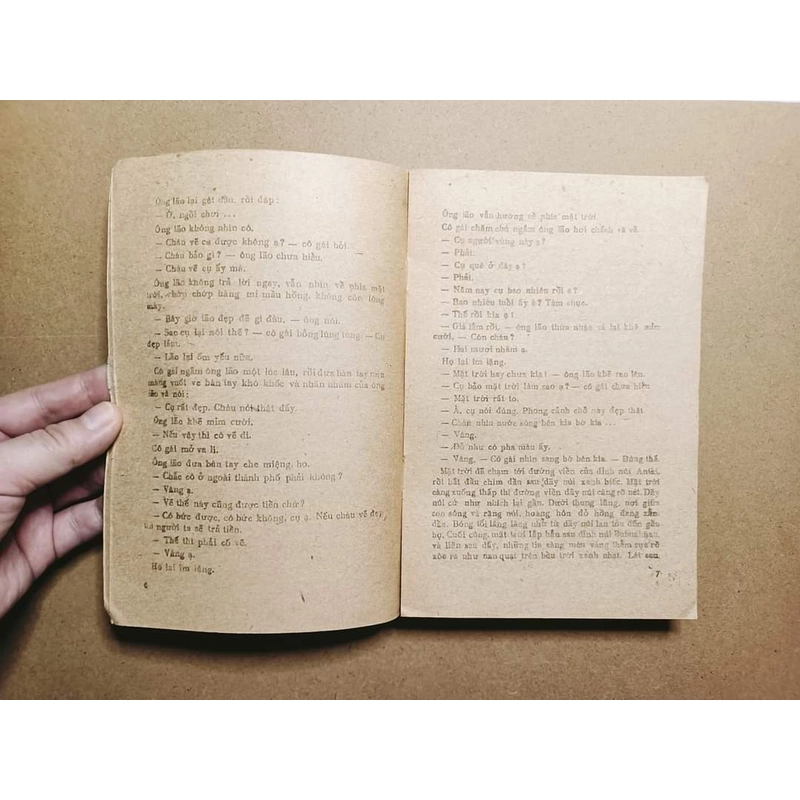 Ông lão lại gật đầu, rồi đáp:
— Ờ, ngồi chơi ...
Ông lão không nhìn cô.
— Cháu vẽ cụ được không ạ? — cô gái hỏi.
— Cháu bảo gì? — ông lão chưa hiểu.
— Cháu vẽ cụ ấy mà.
Ông lão không trả lời ngay, vẫn nhìn về phía mặt
trời, chớp chớp hàng mi mầu hồng, không còn lông
mày.
— Bây giờ lão đẹp đẽ gì đâu, — ông nói.
— Sao cụ lại nói thế? — cô gái bỗng lúng túng. — Cụ
đẹp lắm.
— Lão lại ốm yếu nữa.
Cô gái ngắm ông lão một lúc lâu, rồi đưa bàn tay
vuốt ve bàn tay khô khốc và nhăn nhúm của ông
lão và nói:
— Cụ rất đẹp. Cháu nói thật đấy.
Ông lão khẽ mỉm cười.
— Nếu vậy thì cô vẽ đi.
Cô gái mở va li.
Ông lão đưa bàn tay che miệng, ho.
— Chắc cô ở ngoài thành phố phải không?
— Vâng ạ.
— Vẽ thế này cũng được tiền chứ?
— Có bức được, có bức không, cụ ạ. Nếu cháu vẽ đẹp,
người ta sẽ trả tiền.
— Thế thì phải cố vẽ.
— Vâng ạ.
Họ lại im lặng.
6
Ông lão vẫn hướng về phía mặt trời.
Cô gái chăm chú ngắm ông lão hơi chếnh và vẽ.
— Cụ người vùng này ạ?
— Phải.
— Cụ quê ở đây ạ?
— Phải.
— Năm nay cụ bao nhiêu rồi ạ?
— Bao nhiêu tuổi ấy à? Tám chục.
— Thế rồi kia ạ!
— Già lắm rồi, — ông lão thừa nhận và lại khẽ mỉm
cười. — Còn cháu?
— Hai mươi nhăm ạ.
Họ lại im lặng.
— Mặt trời hay chưa kìa! — ông lão khẽ reo lên.
— Cụ bảo mặt trời làm sao ạ? — cô gái chưa hiểu
— Mặt trời rất to.
— À, cụ nói đúng. Phong cảnh chỗ này đẹp thật
— Cháu nhìn nước sông bên kia bờ kìa ...
— Vâng.
— Đỏ như có pha máu ấy.
— Vâng, — Cô gái nhìn sang bờ bên kia. — Đúng thế.
Mặt trời đã chạm tới đường viền của đỉnh núi
rồi bắt đầu chìm dần sau dãy núi xanh biếc. Mặt trời
càng xuống thấp thì đường viền dãy núi càng rõ nét. Dãy
núi cứ như nhích lại gần. Dưới thung lũng, nơi giữa
con sông và rặng núi, hoàng hôn đỏ hồng đang sẫm
dần. Bóng tối lặng lặng nhờ từ dãy núi lan tỏa đến gần
họ, Cuối cùng, mặt trời lặp hẳn sau đỉnh núi
và liền sau đấy, những tia sáng màu vàng thẫm rực rỡ
xòe ra như nan quạt trên bầu trời xanh nhạt. Lát sau,
7